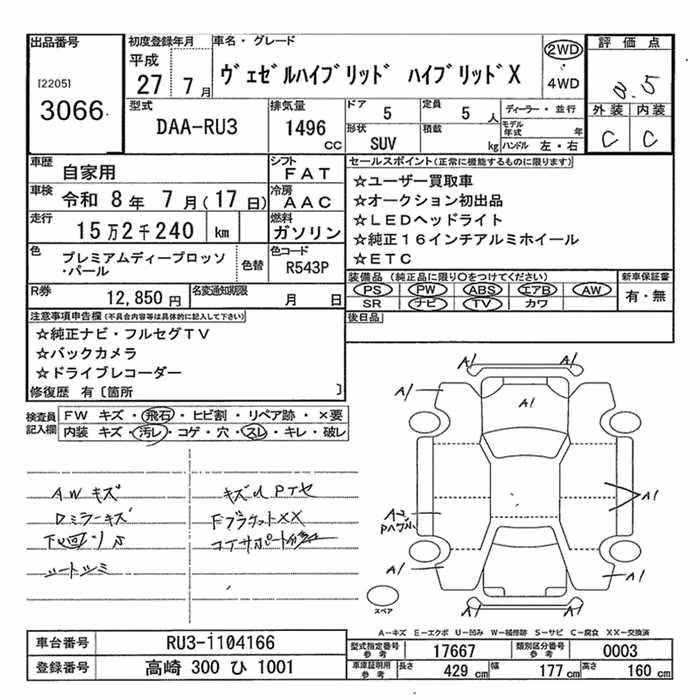 出品番号 初度登録年月 車名・グレード 2WD 評価点
[2205] 平成 ヴェゼルハイブリッド ハイブリッドX ・
3066 27 7月 4WD
型式 排気量 ドア 5 定員 5人 ディーラー・並行 外装 内装
DAA-RU3 1496 cc 形状 SUV 積載 kg モデル年式 年 C C
ハンドル 左・右
車歴 自家用 シフト FAT セールスポイント(正常に機能するものに限ります)
車検 令和 8年 7月(17日) 冷房 AAC ☆ユーザー買取車
☆オークション初出品
走行 15万2千240 km 燃料 ガソリン ☆LEDヘッドライト
☆純正16インチアルミホイール
色 プレミアムディープロッソ・パール 色替 色コード R543P ☆ETC
装備品(純正品に限り○をつけてください) 新車保証書
R券 12,850円 名変通知期限 月 日 PS PW ABS エアB AW 有・無
SR ナビ TV カワ
注意事項申告欄(不具合内容等は具体的に記入して下さい) 後日品
☆純正ナビ・フルセグTV
☆バックカメラ
☆ドライブレコーダー
修復歴 有〔箇所 〕
検査員記入欄 FW キズ・飛石・ヒビ割・リペア跡・×要
内装 キズ・汚レ・コゲ・穴・スレ・キレ・破レ
A1 A1
A1 A1
A1
AWキズ
Dミラーキズ
A2
A1
A1 A1
スペア
A-キズ E-エクボ U-凹み W-補修跡 S-サビ C-腐食 XX-交換済
車台番号 RU3-1104166 型式指定番号 参考 17667 類別区分番号 参考 0003
登録番号 高崎 300 ひ 1001 車庫証明用 参考 長さ 429 cm 幅 177 cm 高さ 160 cm